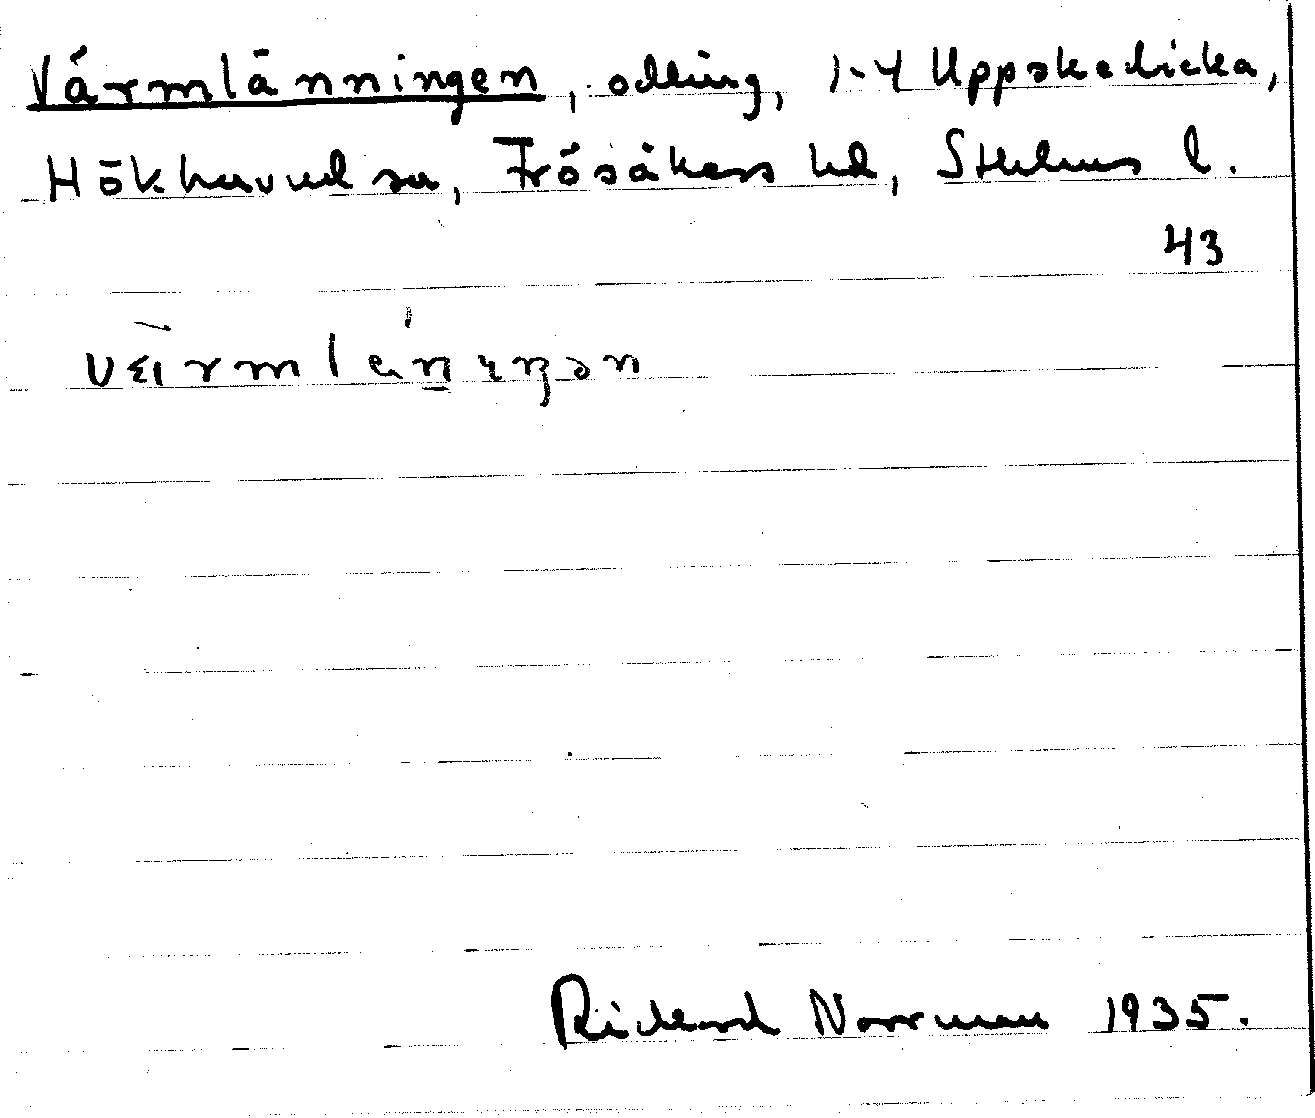 Värmlänningen, odling, 1-4 Uppskedicka,
Hökhuvud sn, Frösåkers hd, Sthlms l.
43
Rickard Norrman 1935.